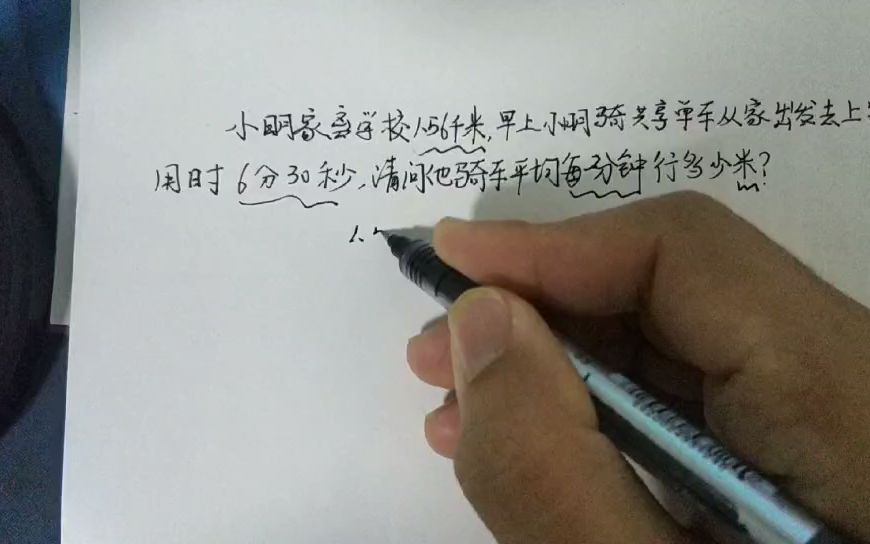 小明家离学校1.56千米,早上小明骑共享单车从家出发去上
用时6分30秒,请问他骑车平均每分钟行多少米?
m
1.